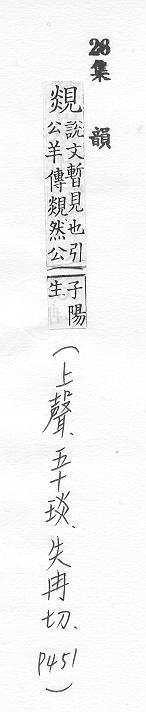 28集韻
覢
說文暫見也引
公羊傳覢然公
子陽
生
（上聲、五十琰、失冉切、P451）